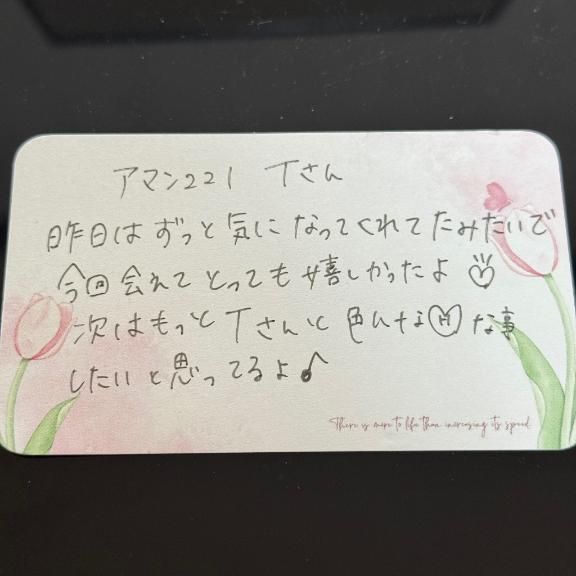 アマン221 Tさん
昨日はずっと気になってくれてたみたいで
今回会れてとっても嬉しかったよ♡
次はもっとTさんと色んなHな事
したいと思ってるよ♪
There is more to life than increasing its speed.